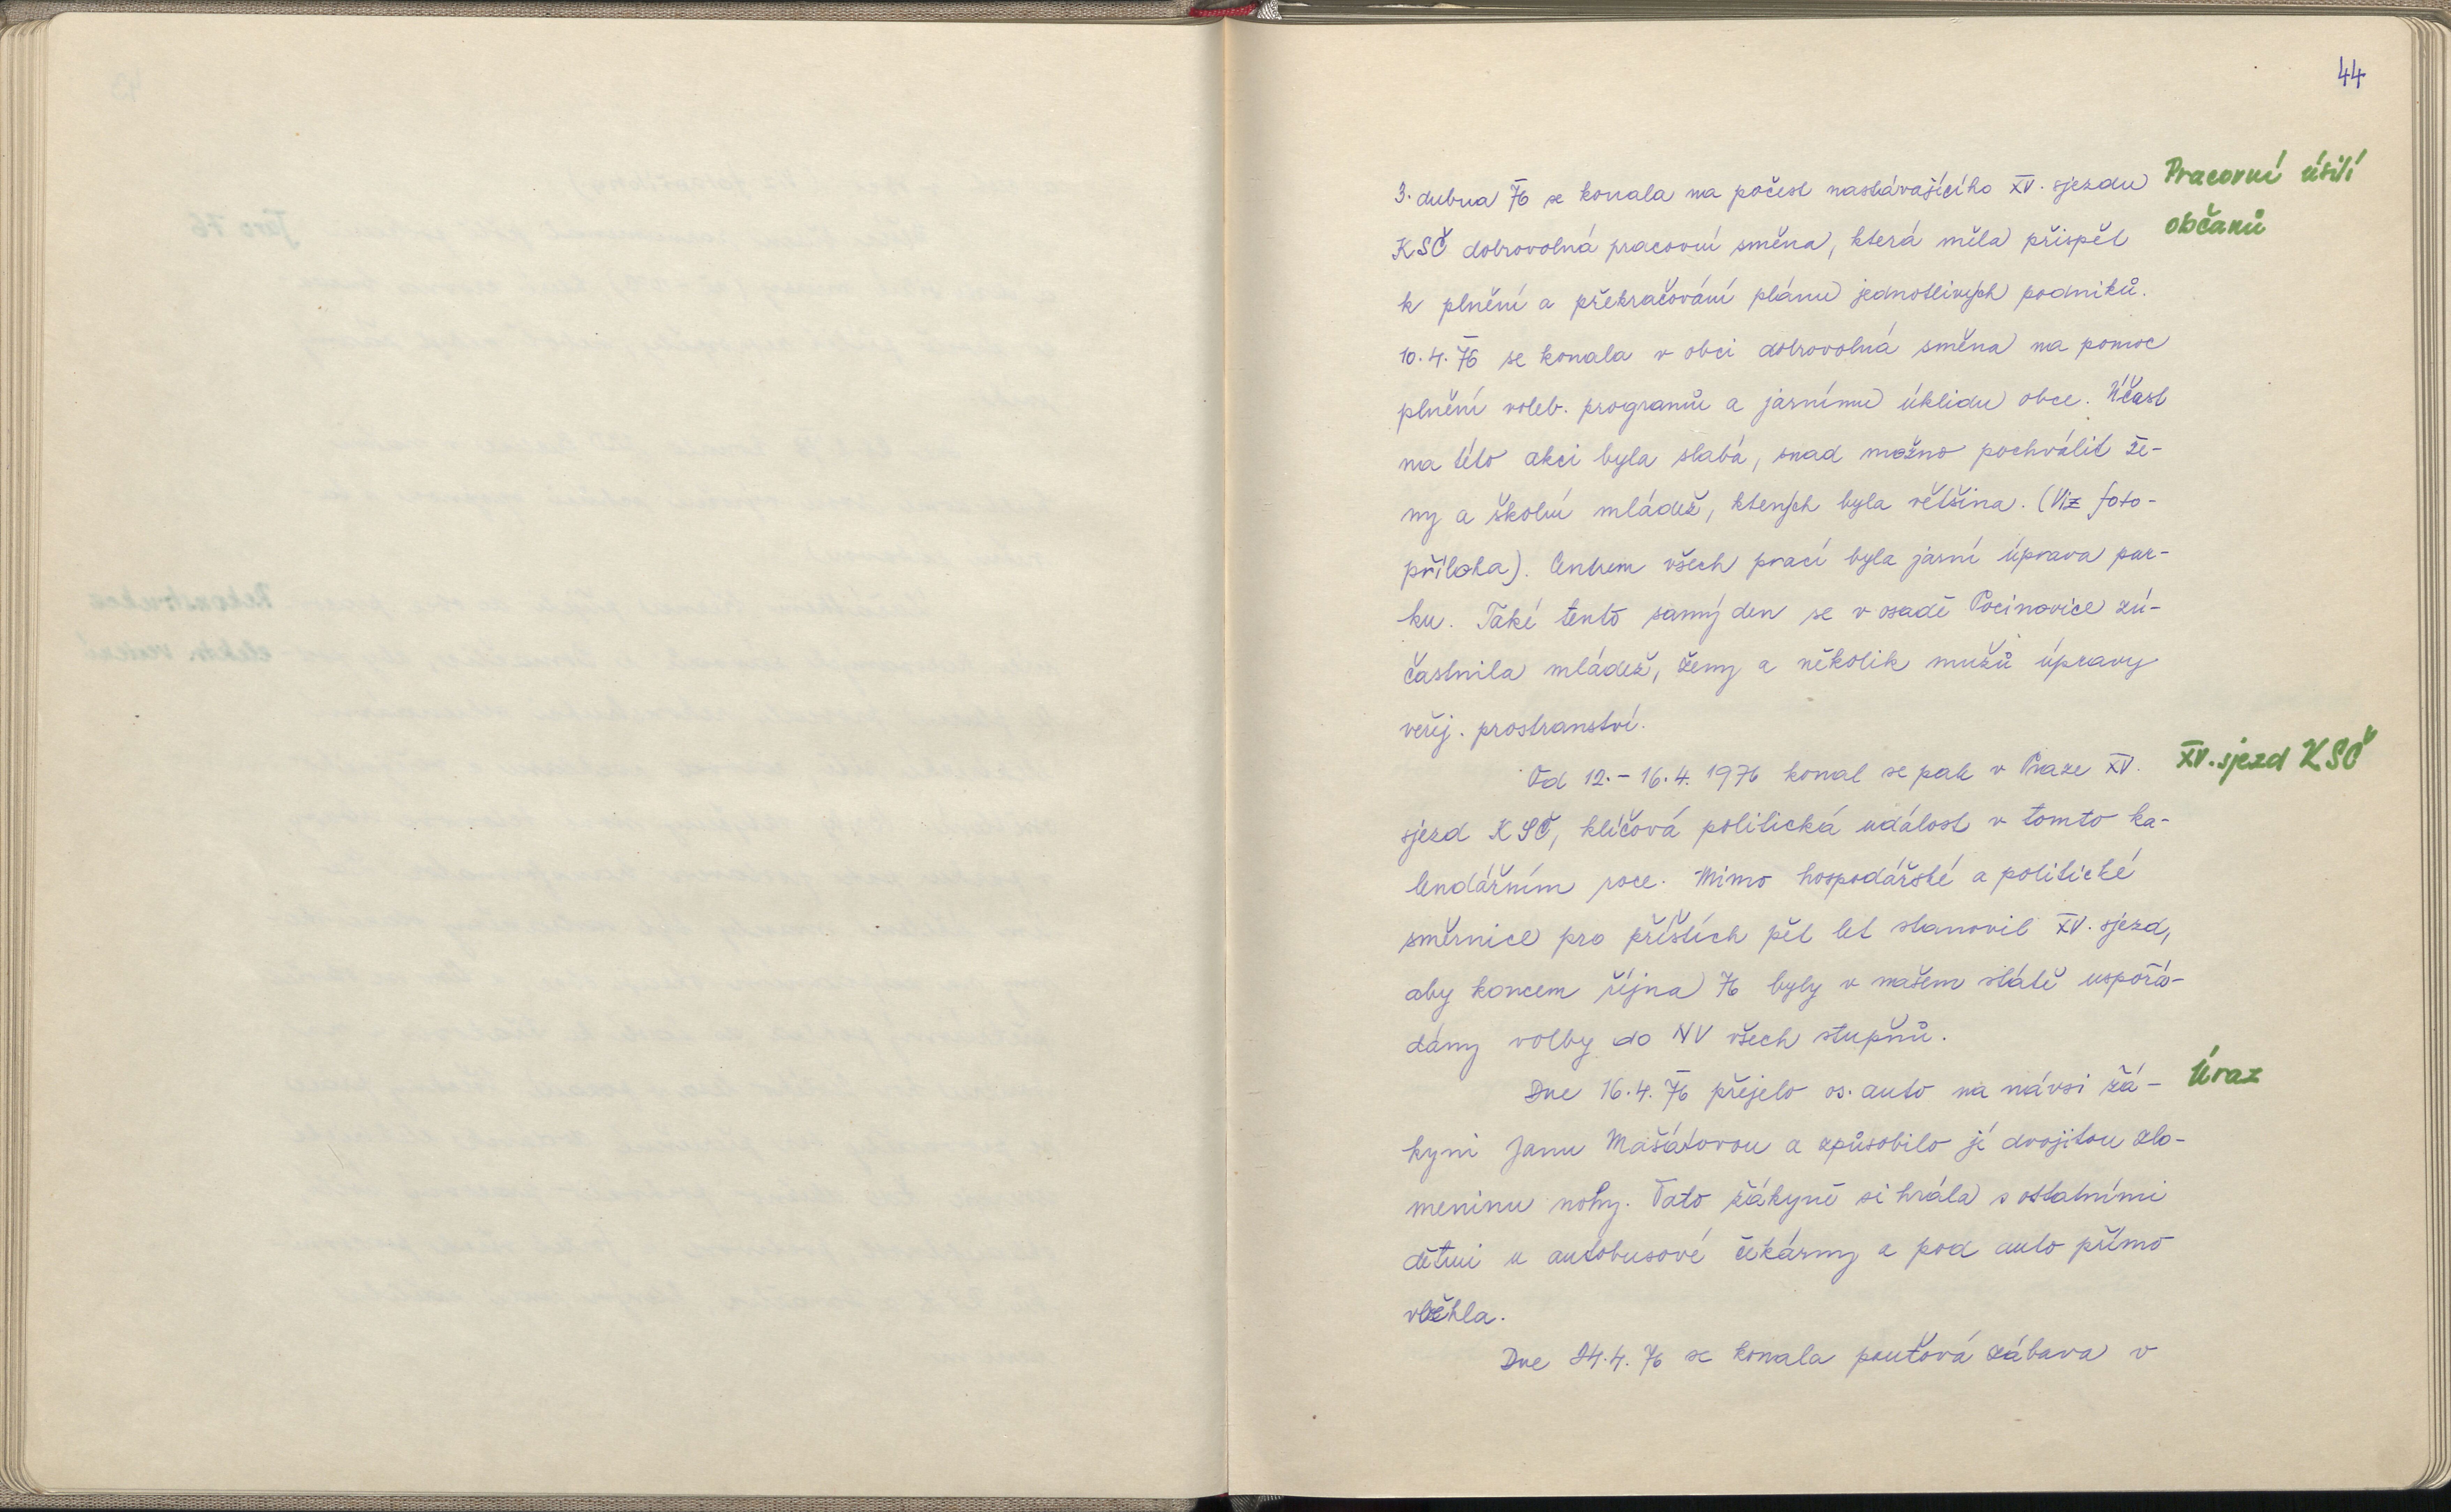 44
3. dubna 76 se konala na počest nastávajícího XV. sjezdu
Pracovní úsilí
KSČ dobrovolná pracovní směna, která měla přispět
občanů
k plnění a překračování plánu jednotlivých podniků.
10. 4. 76 se konala v obci dobrovolná směna na pomoc
plnění voleb. programů a jarnímu úklidu obce. Účast
na této akci byla slabá, snad možno pochválit že-
ny a školní mládež, kterých byla většina. (Viz foto-
příloha). Centrem všech prací byla jarní úprava par-
ku. Také tento samý den se v osadě Pocinovice zú-
častnila mládež, ženy a několik mužů úpravy
veřej. prostranství.
Od 12. - 16. 4. 1976 konal se pak v Praze XV.
XV. sjezd KSČ
sjezd KSČ, klíčová politická událost v tomto ka-
lendářním roce. Mimo hospodářské a politické
směrnice pro příštích pět let stanovil XV. sjezd,
aby koncem října 76 byly v našem státě uspořá-
dány volby do NV všech stupňů.
Dne 16. 4. 76 přejelo os. auto na návsi žá-
Úraz
kyni Janu Mašátovou a způsobilo jí dvojitou zlo-
meninu nohy. Tato žákyně si hrála s ostatními
dětmi u autobusové čekárny a pod auto přímo
vběhla.
Dne 24. 4. 76 se konala pouťová zábava v